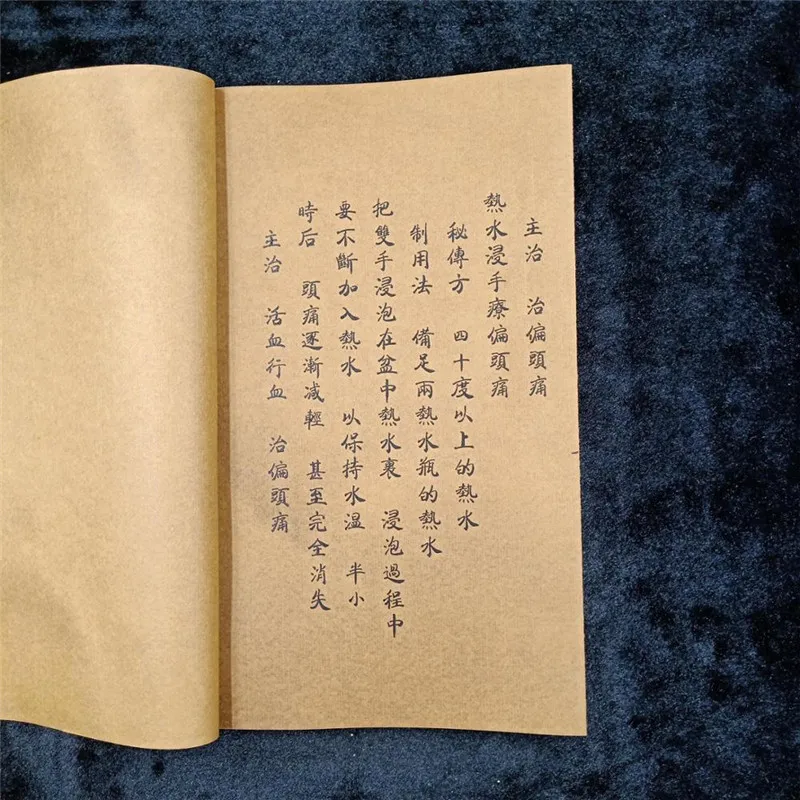 主治　治偏頭痛
熱水浸手療偏頭痛
秘傳方　四十度以上的熱水
制用法　備足兩熱水瓶的熱水
把雙手浸泡在盆中熱水裹　浸泡過程中
要不斷加入熱水　以保持水溫　半小
時后　頭痛逐漸减輕　甚至完全消失
主治　活血行血　治偏頭痛